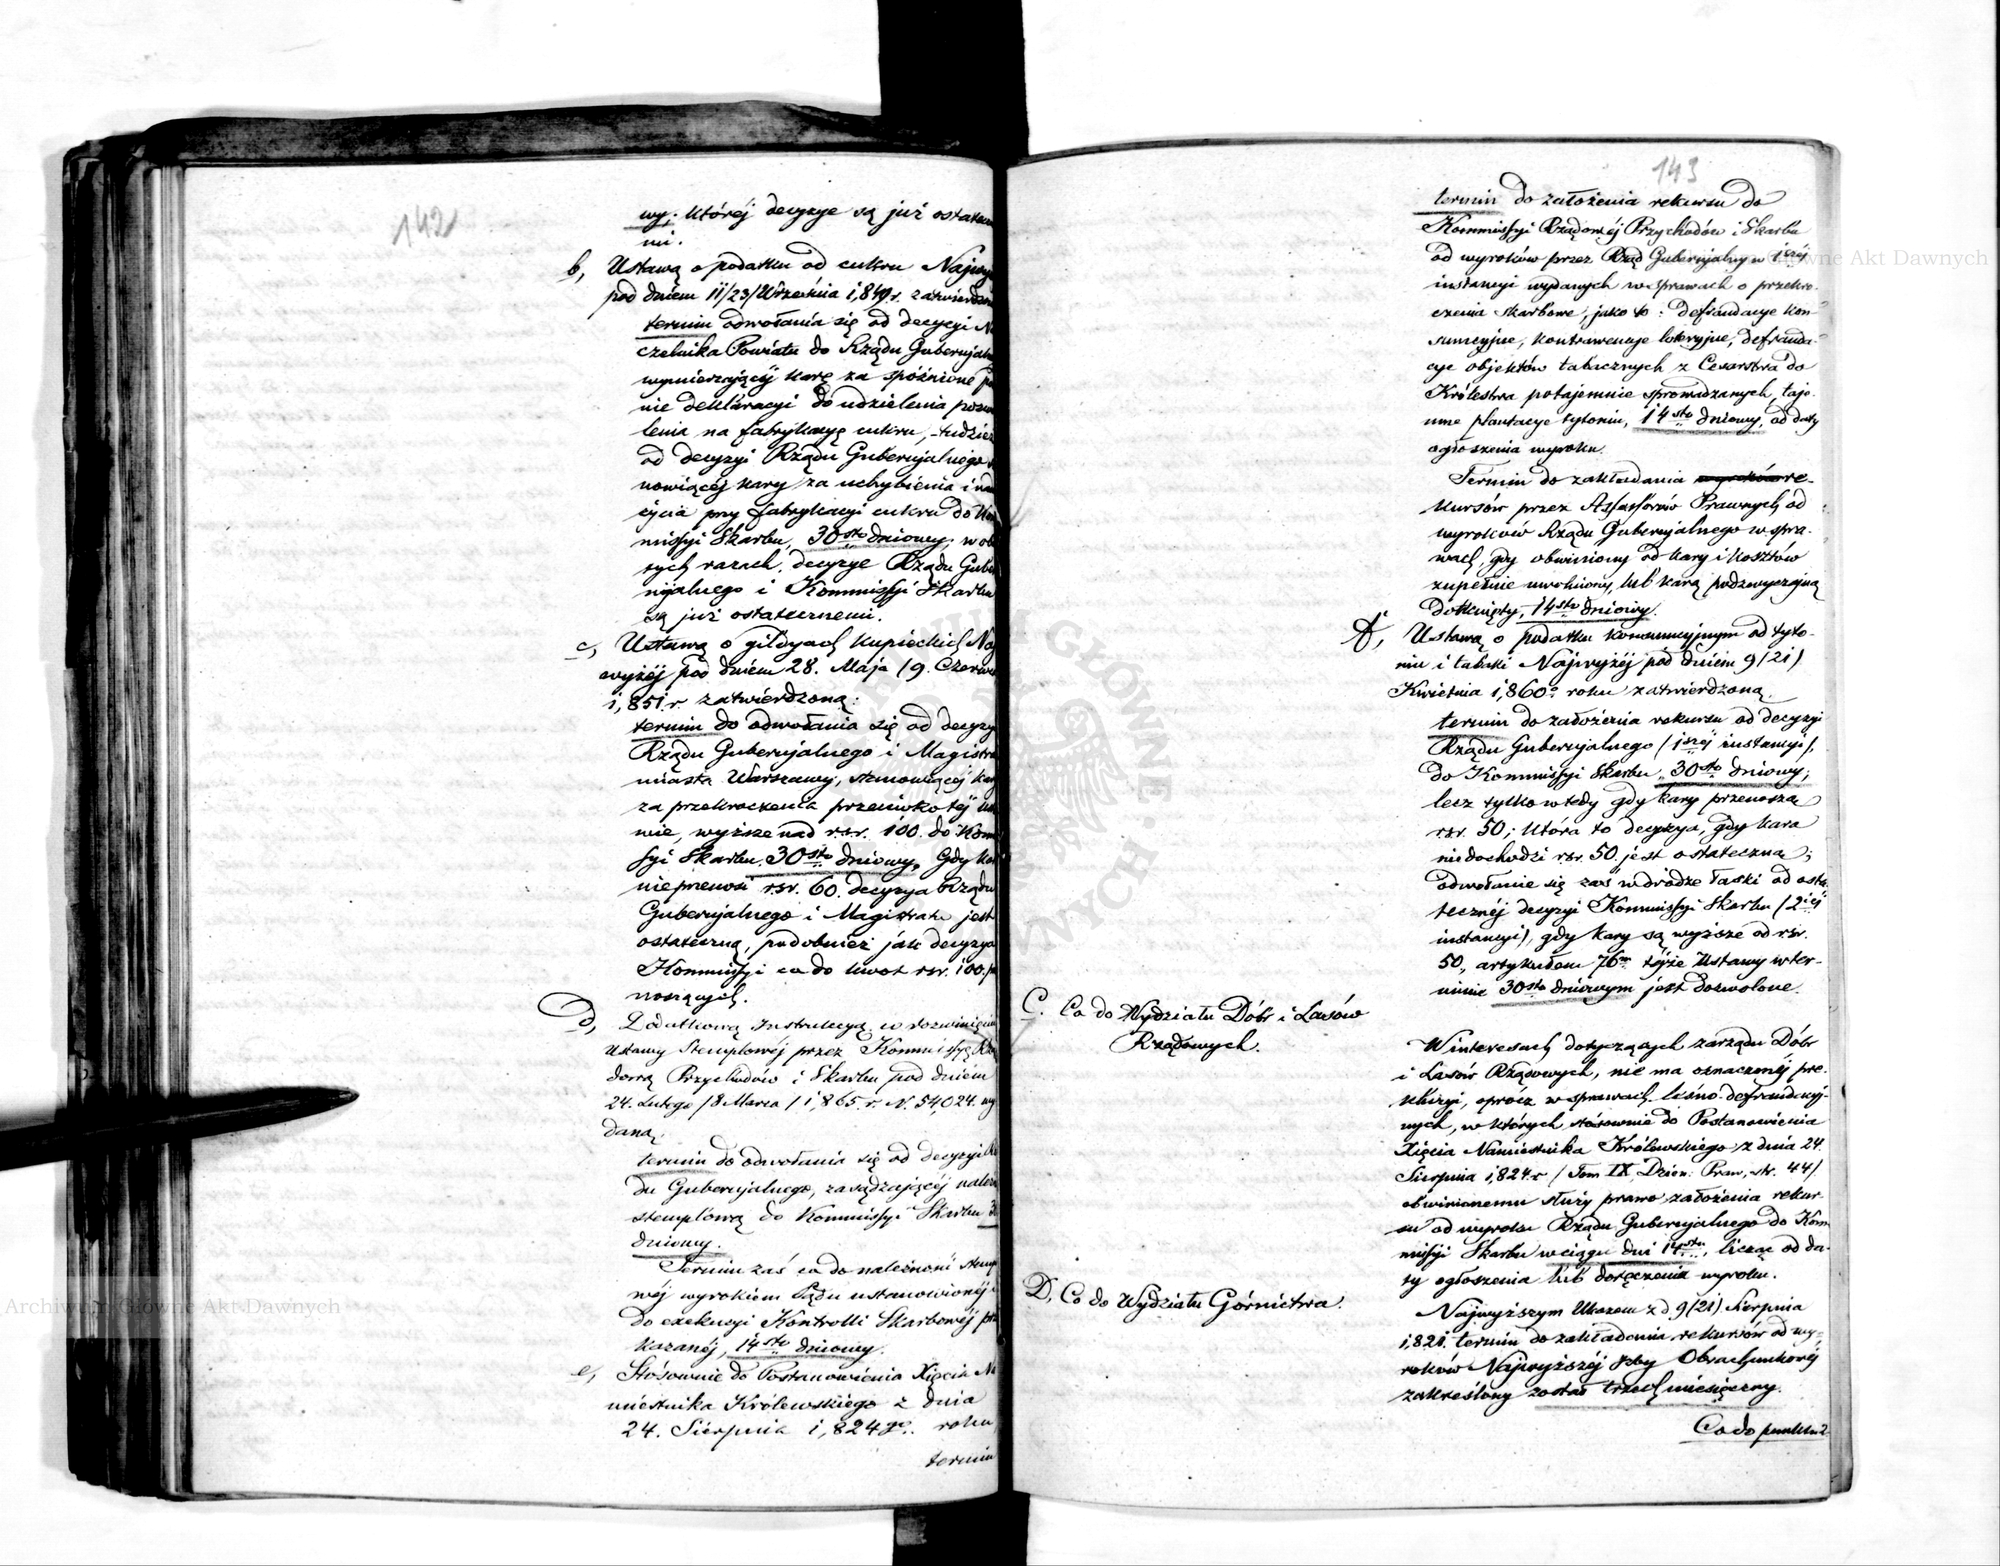 142
wy; której decyzye są już ostatecz
ni.
b, Ustawą o podatku od cukru Najwyż
pod dniem 11/23/Września 1,849 r. zatwierdzon
termin odwołania się od decyzyi Na
czelnika Powiatu do Rządu Gubernjaln
wymierzającéj karę za spóźnione po
nie deklaracyi do udzielenia pozwo
lenia na fabrykacyę cukru, tudzież
od decyzyi Rządu Gubernjalnego
nowiącéj kary za uchybienia i nad
życia przy fabrykacyi cukru do Kom
missyi Skarbu, 30sto dniowy; w ob
tych razach, decyzye Rządu Guber
njalnego i Kommissyi Skarbu
są już ostatecznemi.
c, Ustawą o gildyach kupieckich Naj
wyżéj pod dniem 28. Maja /9. Czerwca
1,851 r. zatwierdzoną:
termin do odwołania się od decyzy
Rządu Gubernjalnego i Magistra
miasta Warszawy, stanowiącéj kary
za przekroczenia przeciwko téj usta
wie, wyższe nad rsr. 100. do Kom
syi Skarbu 30sto dniowy, Gdy kar
nieprzenosi rsr. 60. decyzya Rządu
Gubernjalnego i Magistratu jest
ostateczną, podobnież jak decyzya
Kommissyi co do kwot rsr. 100. prze
noszących.
d, Dodatkową Instrukcyą w rozwinięciu
Ustawy Stemplowéj przez Kommissyę Rzą
dową Przychodów i Skarbu pod dniem
24. Lutego /8 Marca/ 1,865 r. N. 54,024. wy
daną.
termin do odwołania się od decyzyi Rzą
du Gubernjalnego, zasądzającéj należn
stemplową do Kommissyi Skarbu 30
dniowy.
Termin zaś co do należności stempl
wéj wyrokiem Sądu ustanowionéj i
do exekucyi Kontrolli Skarbowéj prze
kazanéj, 14sto dniowy.
e, Stósownie do Postanowienia Xięcia Na
miestnika Królewskiego z dnia
24. Sierpnia 1,824go. roku,
termin
143
termin do założenia rekursu do
Kommissyi Rządowéj Przychodów i Skarbu
od wyroków przez Rząd Gubernjalny w 1széj
instancyi wydanych w sprawach o przekro-
czenia skarbowe, jako to: defraudacye kon-
sumcyjne, kontrawencye loteryjne, defrauda-
cye objektów tabacznych z Cesarstwa do
Królestwa potajemnie sprowadzanych, taje-
mne plantacye tytoniu, 14sto dniowy, od daty
ogłoszenia wyroku.
Termin do zakładania wyroków re-
kursów przez Assessorów Prawnych od
wyroków Rządu Gubernjalnego w spra-
wach, gdy obwiniony od kary i kosztów
zupełnie uwolniony, lub karą podzwyczajną
dotknięty, 14sto dniowy.
f, Ustawą o podatku konsumcyjnym od tyto-
niu i tabaki Najwyżéj pod dniem 9/21/
Kwietnia 1,860o roku zatwierdzoną.
termin do założenia rekursu od decyzyi
Rządu Gubernjalnego /1széj instancyi/,
do Kommissyi Skarbu, 30sto dniowy;
lecz tylko wtedy gdy kary przenoszą
rsr. 50; która to decyzya, gdy kara
niedochodzi rsr. 50. jest ostateczną;
odwołanie się zaś w drodze łaski od osta-
tecznéj decyzyi Kommissyi Skarbu /2iéj
instancyi/, gdy kary są wyższe od rsr.
50., artykułem 76m téjże Ustawy w ter-
minie 30sto dniowym jest dozwolone.
C. Co do Wydziału Dóbr i Lasów
Rządowych.
W interesach dotyczących zarządu Dóbr
i Lasów Rządowych, nie ma oznaczonéj pre-
kluzyi, oprócz w sprawach leśno-defraudacyj-
nych, w których stósownie do Postanowienia
Xięcia Namiestnika Królewskiego z dnia 24.
Sierpnia 1,824. r /Tom IX, Dzien: Praw, str. 44/.
obwinionemu służy prawo założenia rekur-
su od wyroku Rządu Gubernjalnego do Kom-
missyi Skarbu w ciągu dni 14stu, licząc od da-
ty ogłoszenia lub doręczenia wyroku.
D, Co do Wydziału Górnictwa.
Najwyższym Ukazem z d 9/21/ Sierpnia
1,821. termin do zakładania rekursów od wy-
roków Najwyższéj Izby Obrachunkowéj
zakreślony został trzech miesięczny.
Co do punktu 2
Archiwum Główne Akt Dawnych
Główne Akt Dawnych